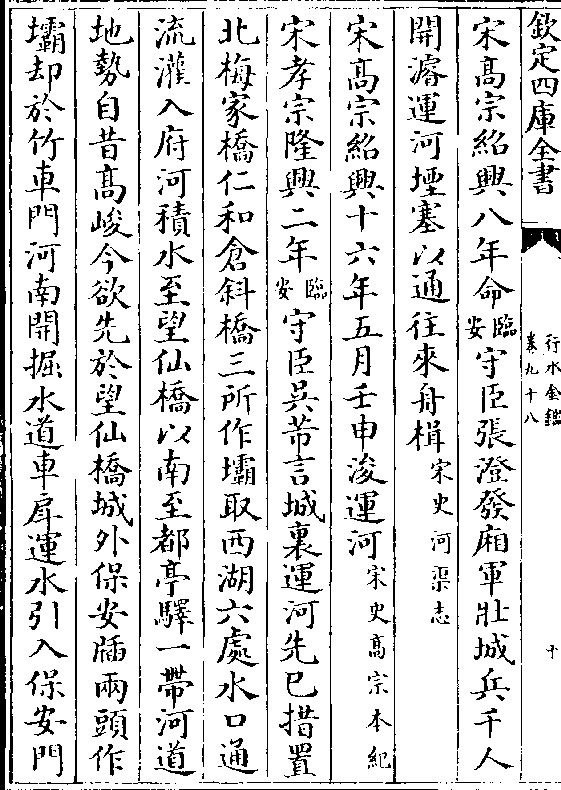 欽定四庫全書
行水金鑑
卷九十八
十
宋髙宗紹興八年命臨安守臣張澄發廂軍壯城兵千人
開濬運河堙塞以通往來舟楫宋史河渠志
宋髙宗紹興十六年五月壬申浚運河宋史髙宗本紀
宋孝宗隆興二年臨安守臣吳芾言城裏運河先已措置
北梅家橋仁和倉斜橋三所作壩取西湖六處水口通
流灌入府河積水至望仙橋以南至都亭驛一帶河道
地勢自昔髙峻今欲先於望仙橋城外保安牐兩頭作
壩却於竹車門河南開掘水道車戽運水引入保安門